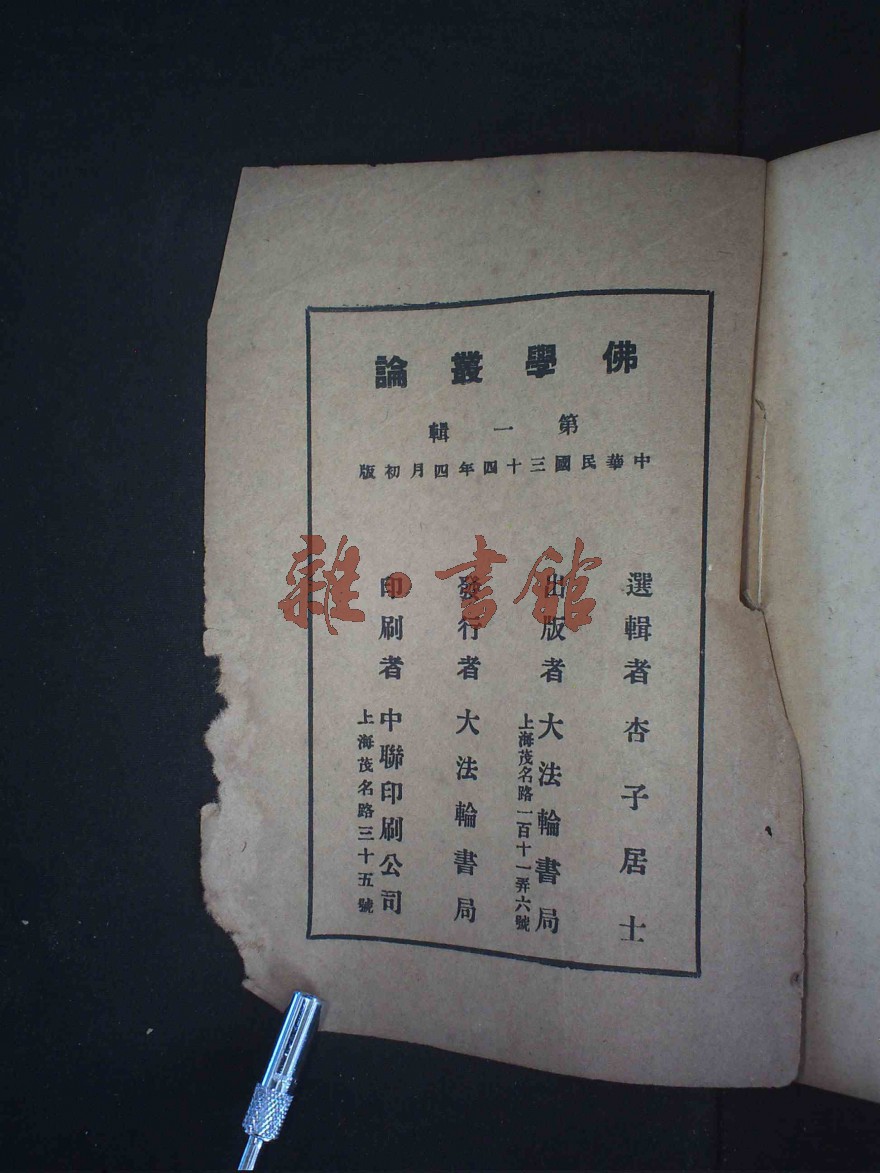 佛學叢論
第一輯
中華民國三十四年四月初版
選輯者 杏子居士
出版者 大法輪書局
上海茂名路一百十一弄六號
發行者 大法輪書局
印刷者 中聯印刷公司
上海茂名路三十五號
雜·書館